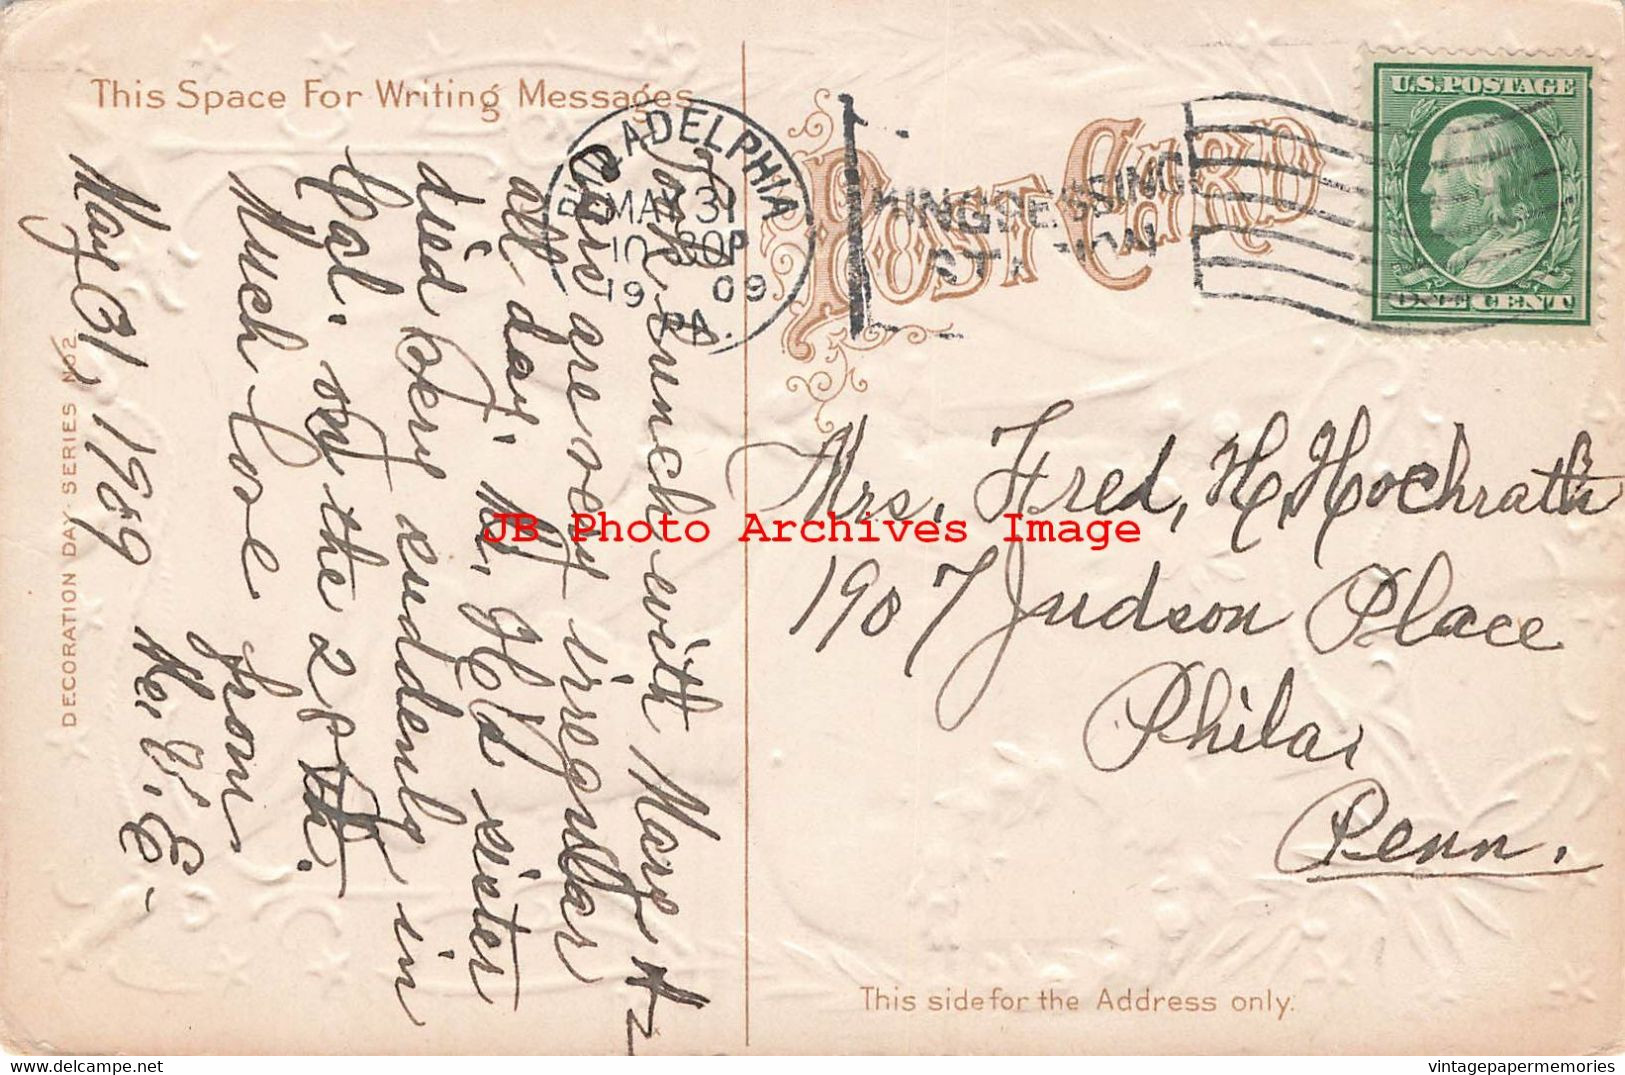 This Space For Writing Messages
May 31, 1909
Took lunch with Marge &
Cars are very irregular
all day. Mr. Held sister
died very suddenly in
Col. on the 28th.
Much love
from
DECORATION DAY SERIES No 2
PHILADELPHIA
MAY 31
10 30P
1909
PA.
KINGSESSING
STATION
POST CARD
U.S. POSTAGE
ONE CENT
Mrs. Fred, H. Hochrath
1907 Judson Place
Phila,
Penn.
This side for the Address only.
JB Photo Archives Image
vintagepapermemories